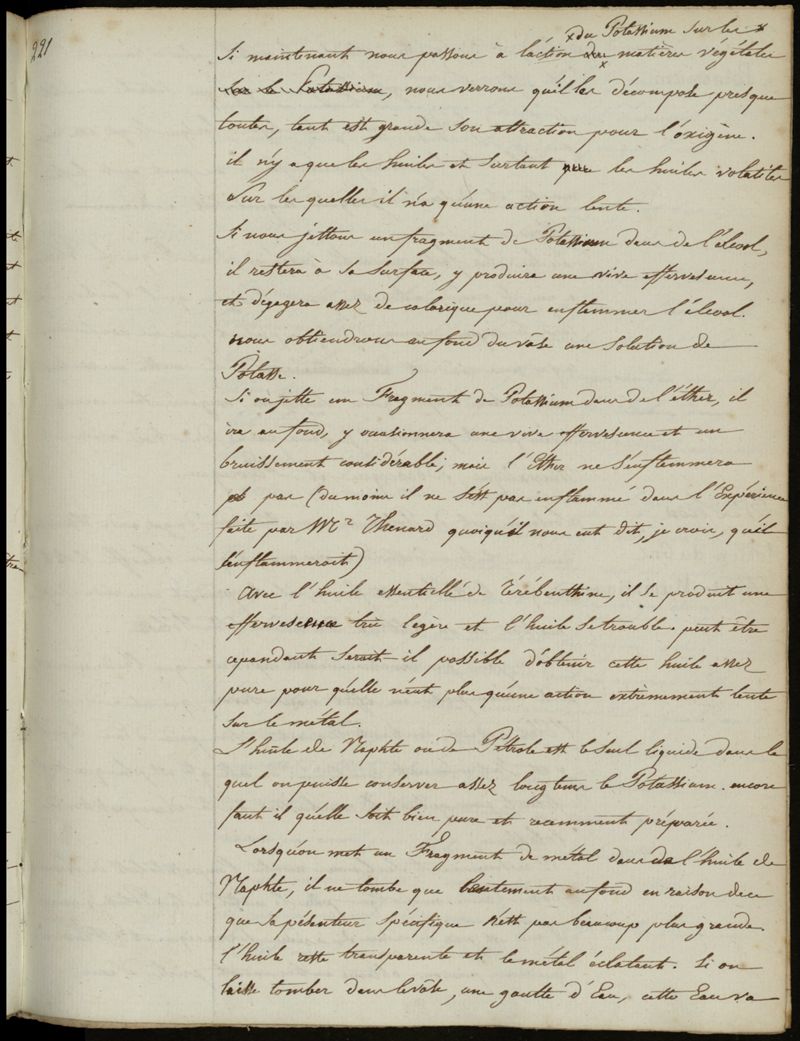 221
× du Potassium sur les ×
Si maintenant nous passons à l'action des matières végétales
sur le Potassium, nous verrons qu'il les décompose presque
toutes, tant est grande son attraction pour l'oxigène.
il n'y a que les huiles et surtout les huiles volatiles
Sur les quelles il n'a qu'une action lente.
Si nous jettons un fragment de Potassium dans de l'álcool,
il restera à sa surface, y produira une vive effervescence,
et dégagera assez de calorique pour enflammer l'álcool.
nous obtiendrons au fond du vâse une solution de
Potasse.
Si on jette un Fragment de Potassium dans de l'éther, il
ira au fond, y occasionnera une vive effervescence et un
bruissement considérable; mais l'Ether ne s'enflammera
pas (du moins il ne s'est pas enflammé dans l'Expérience
faite par Mr Thenard quoiqu'il nous eut dit, je crois, qu'il
s'enflammeroit)
Avec l'huile essentielle de Térébenthine, il se produit une
effervescence très legère et l'huile se trouble. peut être
cependant serait-il possible d'obtenir cette huile assez
pure pour qu'elle n'eut plus qu'une action extrèmement lente
sur le métal.
L'huile de Naphte ou de Pétrole est le seul liquide dans le
quel on puisse conserver assez longtems le Potassium. encore
faut il qu'elle soit bien pure et recemment préparée.
Lorsqu'on met un Fragment de métal dans de l'huile de
Naphte, il ne tombe que lentement au fond en raison de ce
que sa pésenteur spécifique n'est pas beaucoup plus grande.
l'huile reste transparente et le métal éclatant. Si on
laisse tomber dans le vâse, une goutte d'Eau, cette Eau va